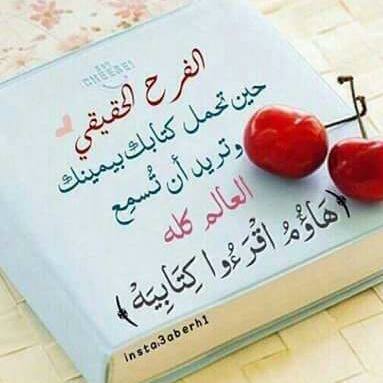 SAY
CHEESE!
الفرح الحقيقي
حين تحمل كتابك بيمينك
وتريد أن تُسمِع
العالم كله
﴿هَاؤُمُ اقْرَءُوا كِتَابِيَهْ﴾
insta:3aberh1